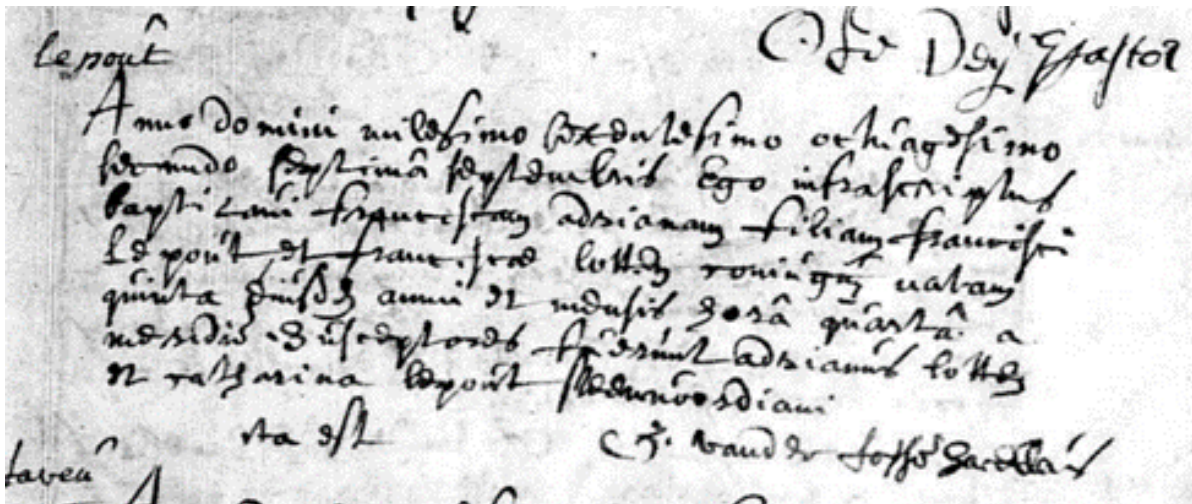 le pout
Pastor
Annus domini milesimo sexcentesimo octuagesimo
secundo septima septembris Ego infrascriptus
baptizavi franciscam adrianam filiam francisci
Le pout et franciscae lotten coniugum natam
quinta eiusdem annii et mensis hora quarta a
meridie susceptores fuerunt adrianus lotten
et catharina lepout
ita est vander